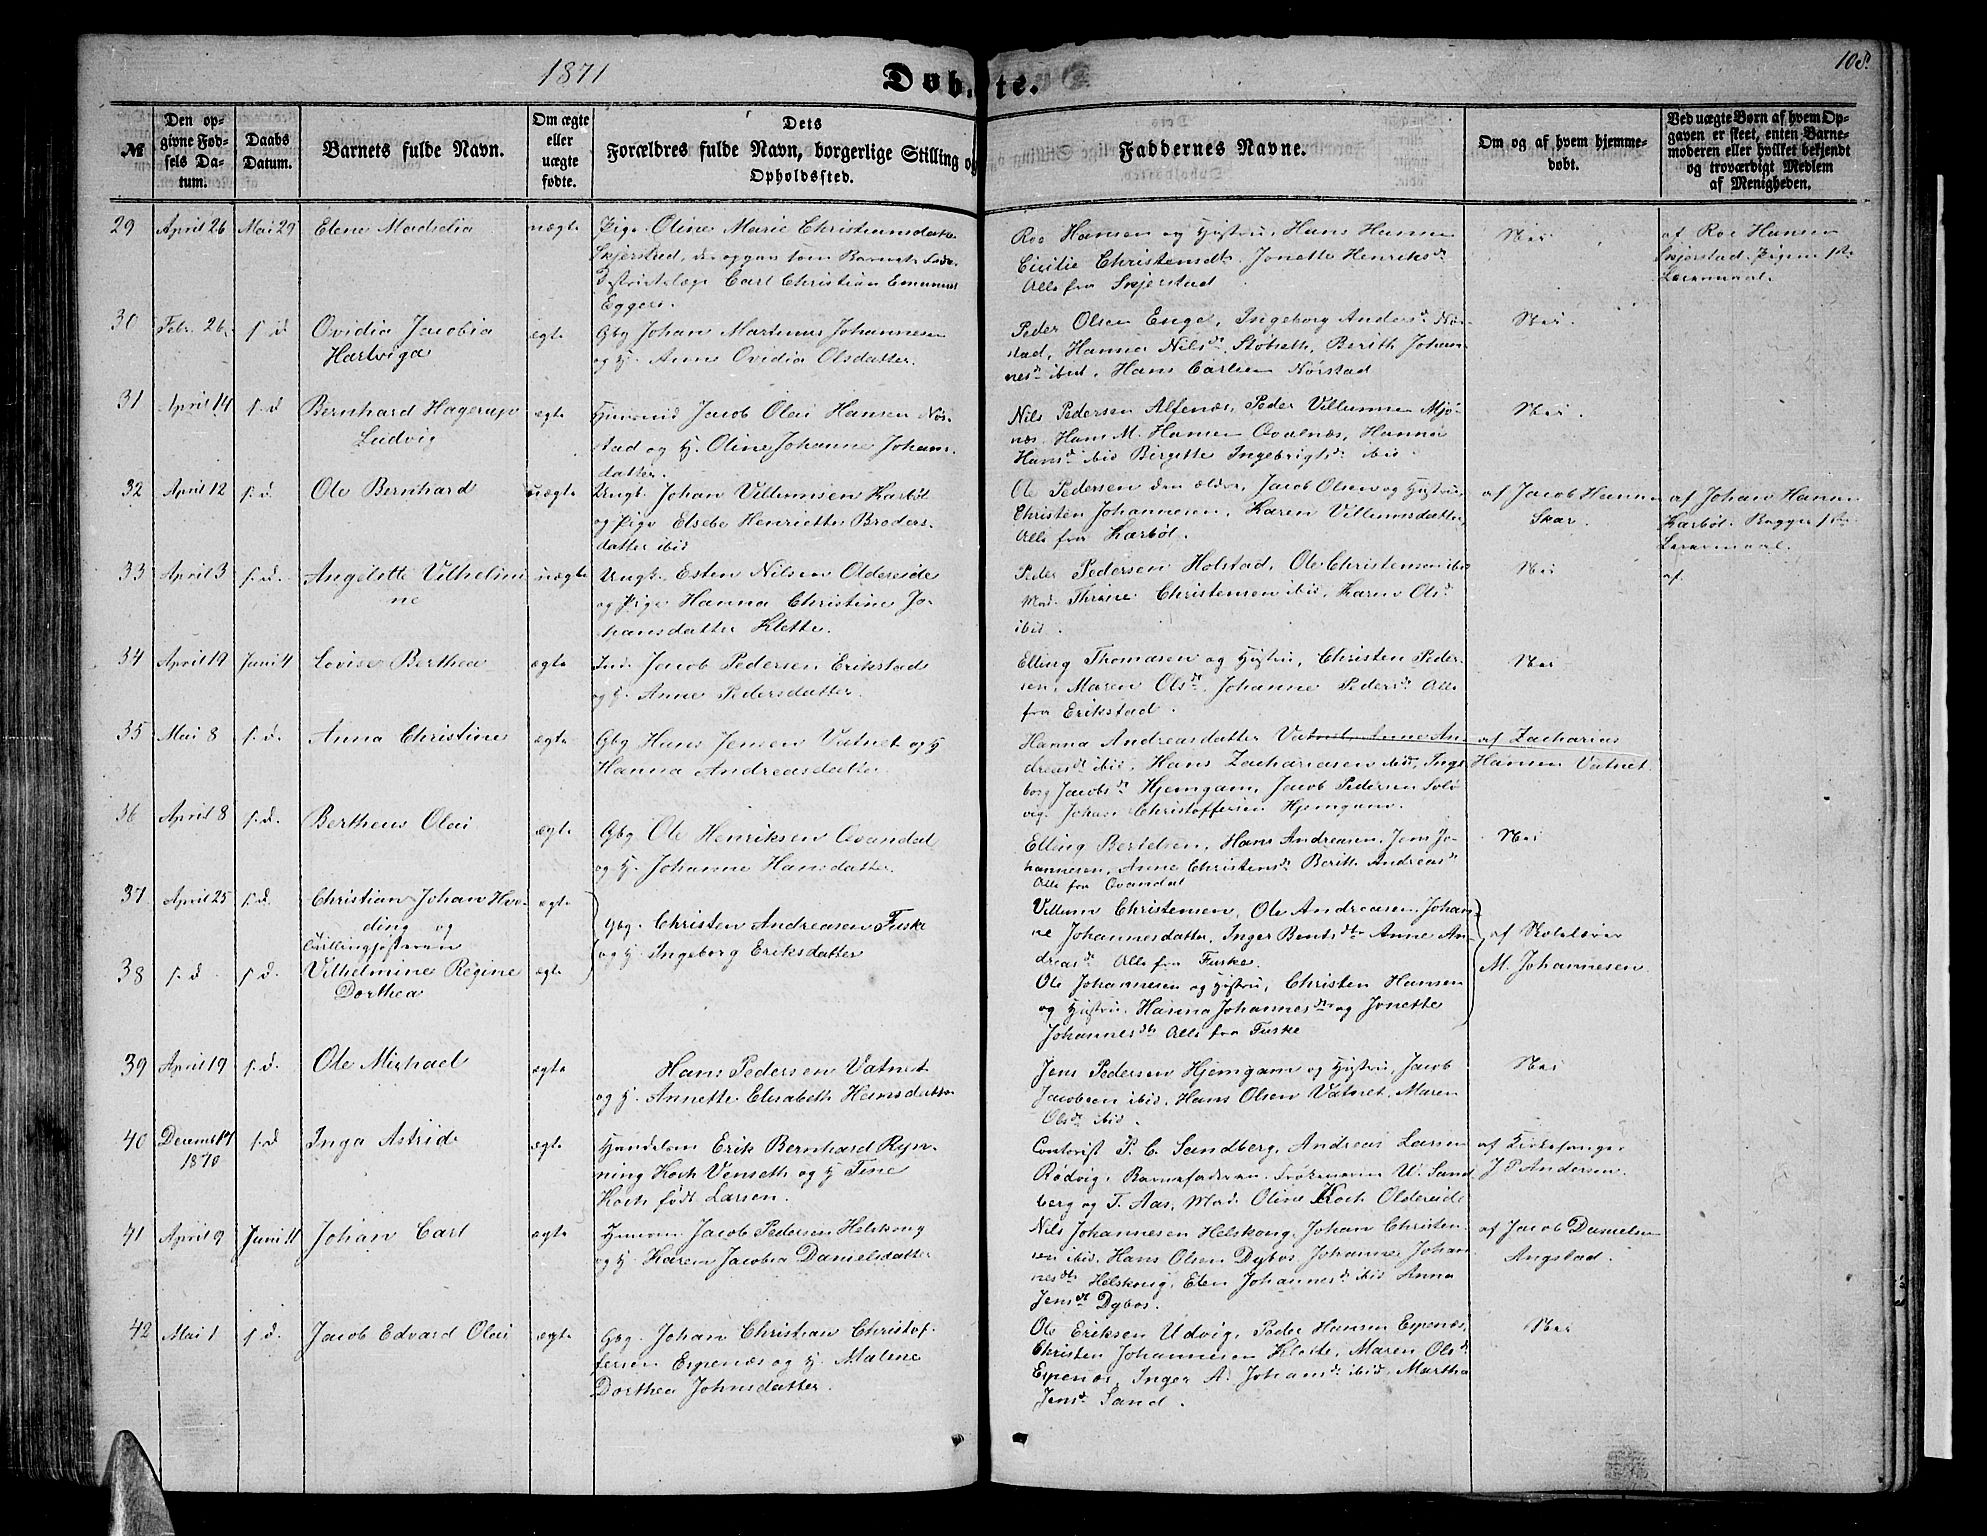 1871
Døbte.
108.
№
Den opgivne Fødsels Datum.
Daabs Datum.
Barnets fulde Navn.
Om ægte eller uægte fødte.
Dets Forældres fulde Navn, borgerlige Stilling og Opholdssted.
Faddernes Navne.
Om og af hvem hjemmedøbt.
Ved uægte Børn af hvem Opgaven er skeet, enten Barnemoderen eller hvilket bekjendt og troværdigt Medlem af Menigheden.
29 April 26 Mai 29 Elene Madselia uægte
Pige Oline Marie Christiansdatter
Skjerstad, der opgav som Barnets Fader
Distriktslæge Carl Christian Emanuel
Eggers.
Roe Hansen og Hustru, Hans Hansen
Cicilie Christensdtr, Jonette Henriksd.
Alle fra Skjerstad
Nei
af Roe Hansen
Skjerstad. Pigens 1ste
Leiermaal.
30 Febr. 26 s. d. Ovidia Jacobia
Hartviga
ægte
Gbg Johan Martinus Johannesen
og H. Anne Ovidia Olsdatter.
Peder Olsen Engel, Ingeborg Andersd. Nør-
stad, Hanna Nilsdt. Støbseth, Berith Johan-
nesd. ibid, Hans Carlsen Nørstad
Nei.
31 April 14 s. d Bernhard Hagerup
Ludvig
ægte
Huusmd Jacob Olai Hansen Nør-
stad og H. Oline Johanne Johans-
datter.
Nils Pedersen Alfenæs, Peder Villumsen Mjø-
næs. Hans M. Hansen Qvalnæs, Hanna
Hansd. ibid Birgitte Ingebrigtsd. ibid.
Nei.
32 April 12 s. d. Ole Bernhard uægte
Ungk. Johan Villumsen Karbøl
og Pige Elsebe Henriette Broders-
datter ibid
Ole Pedersen den ældre, Jacob Olsen og Hustru,
Christen Johannesen, Karen Villumsdatter,
Alle fra Karbøl.
af Jacob Hansen
Skar.
af Johan Hansen
Karbøl. Begges 1ste
Leiermaal.
33 April 3 s. d. Angelitte Vilhelmi
ne
uægte
Ungk. Esten Nilsen Oldereide
og Pige Hanna Christine Jo-
hansdatter Klette.
Peder Pedersen Holstad, Ole Christensen ibid
Mad. Thrane Christensen ibid, Karen Olsd.
ibid.
Nei
af.
34 April 19 Juni 4 Lovise Berthea ægte
Ind. Jacob Pedersen Erikstad
og H. Anne Pedersdatter.
Elling Thomasen og Hustru, Christen Peder-
sen, Maren Olsdt. Johanne Pedersd. Alle
fra Erikstad.
Nei
35 Mai 8 s. d. Anna Christine ægte
Gbg Hans Jensen Vatnet og H
Hanna Andreasdatter
Hanna Andreasdatter Vatnet Anne An-
dreasd. ibid, Hans Zachariasen ibid, Inge-
borg Jacobsd. Hjemgam, Jacob Pedersen Solø
vig. Johan Christoffersen Hjemgam.
af Zacharias
Hansen Vatnet.
36 April 8 s. d. Bertheus Olai ægte
Gbg Ole Henriksen Qvandal
og H. Johanne Hansdatter.
Elling Bertelsen, Hans Andreasen, Jens Jo-
hannesen, Anne Christensd. Berith Andreasd.
Alle fra Qvandal
Nei
37 April 25 s. d. Christian Johan Hve-
ding og
Tvillingsøsteren
ægte
Gbg. Christen Andreasen Fuske
og H. Ingeborg Eriksdatter
Villum Christensen, Ole Andreasen, Johan-
ne Johannesdatter, Inger Bentsdtr Anne An-
dreasd. Alle fra Fuske.
af Skolelærer
M. Johannesen
38 s. d s. d. Vilhelmine Regine
Dorthea
ægte
Ole Johannesen og Hustru, Christen Hansen
og Hustru. Hanna Johannesdtr og Jonette
Johannesdtr Alle fra Fuske
39 April 9 s. d. Ole Michael ægte
Hans Pedersen Vatnet
og H. Annette Elisabeth Hansdatter
Jens Pedersen Hjemgam og Hustru, Jacob
Jacobsen ibid, Hans Olsen Vatnet, Maren
Olsdt. ibid.
Nei
40 Decemb 14
1870
s. d Inga Astride ægte
Handelsm. Erik Bernhard Ryn-
ning Koch Venseth og H Tine
Koch født Larsen.
Contorist P. C. Sandberg, Andreas Larsen
Rødvig, Barnefaderen. Frøknerne U. Sand
berg og T. Aas, Mad. Oline Koch Oldereide
af Kirkesanger
J P Andersen.
41 April 9 Juni 11 Johan Carl ægte
Huusm. Jacob Pedersen Helskong
og H. Karen Jacobia Danielsdatter
Nils Johannesen Helskong, Johan Christen-
sen ibid. Hans Olsen Dybos, Johanne Johan
nesdtr Helskong, Elen Johannesd. ibid Anna
Jensdt Dybos.
af Jacob Danielsen
Angstad.
42 Mai 1 s. d. Jacob Edvard Olai ægte
Gbg. Johan Christian Christof-
fersen Espenæs og H. Malene
Dorthea Johnsdatter.
Ole Eriksen Udvig, Peder Hansen Espenæs,
Christen Johannesen Klette, Maren Olsd.
Espenæs, Inger A. Johansd. ibid, Martha
Jensd. Sand.
Nei